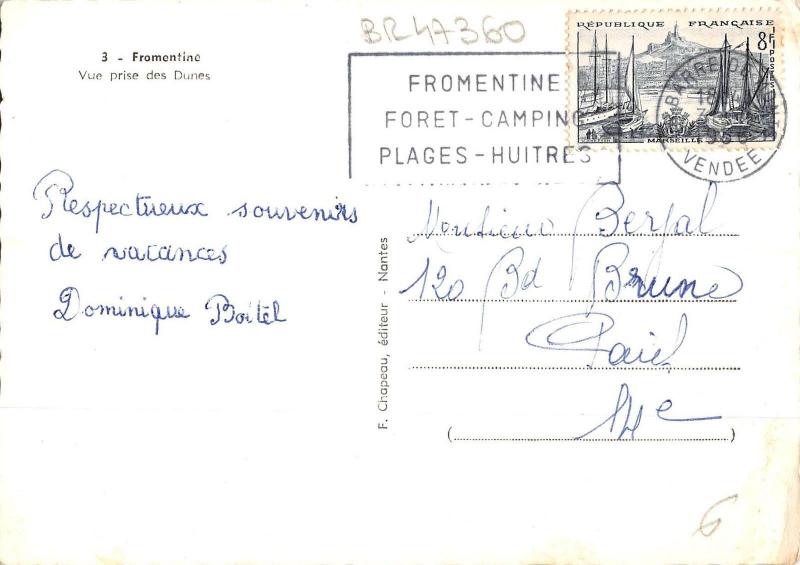 BR47360
3 - Fromentine
Vue prise des Dunes
FROMENTINE
FORET-CAMPING
PLAGES-HUITRES
RÉPUBLIQUE FRANÇAISE
8F
POSTES
MARSEILLE
BARRE DE MONTS
VENDEE
Respectueux souvenirs
de vacances
Dominique Boitel
F. Chapeau, éditeur - Nantes
Monsieur Berjal
120 Bd Brune
Paris
14e
( )
6